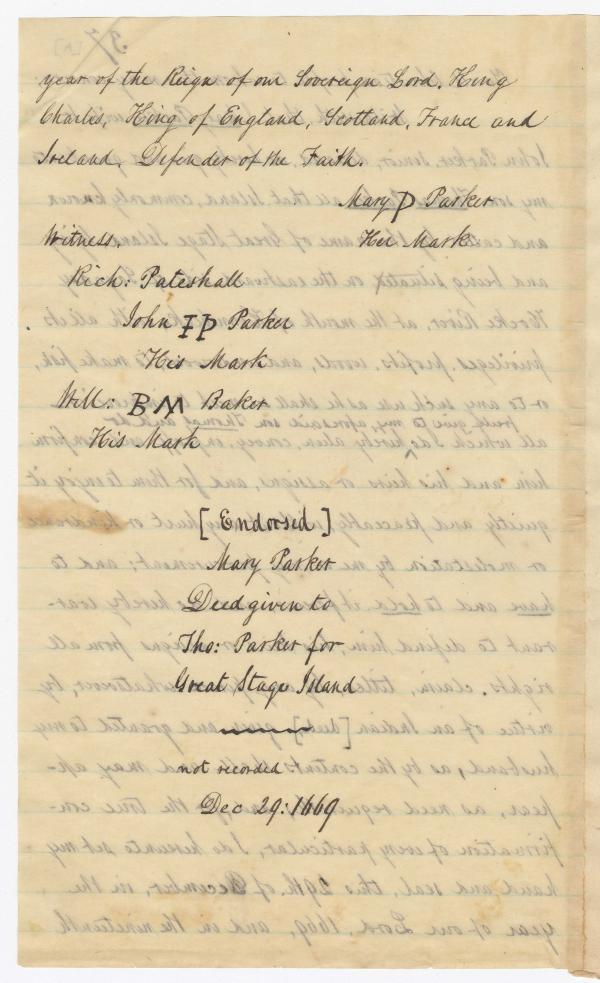 year of the Reign of our Sovereign Lord. King
Charles, King of England, Scotland, France and
Ireland, Defender of the Faith.
Mary P Parker
Witness, Her Mark
Rich: Pateshall
John IP Parker
His Mark
Will: B M Baker
His Mark
[Endorsed]
Mary Parker
Deed given to
Tho: Parker for
Great Stage Island
not recorded:
Dec 29: 1669